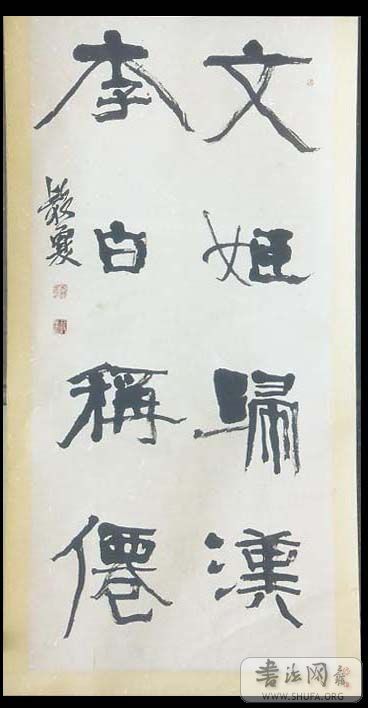 文姬歸漢
李白稱僊
書法网
WWW.SHUFA.ORG